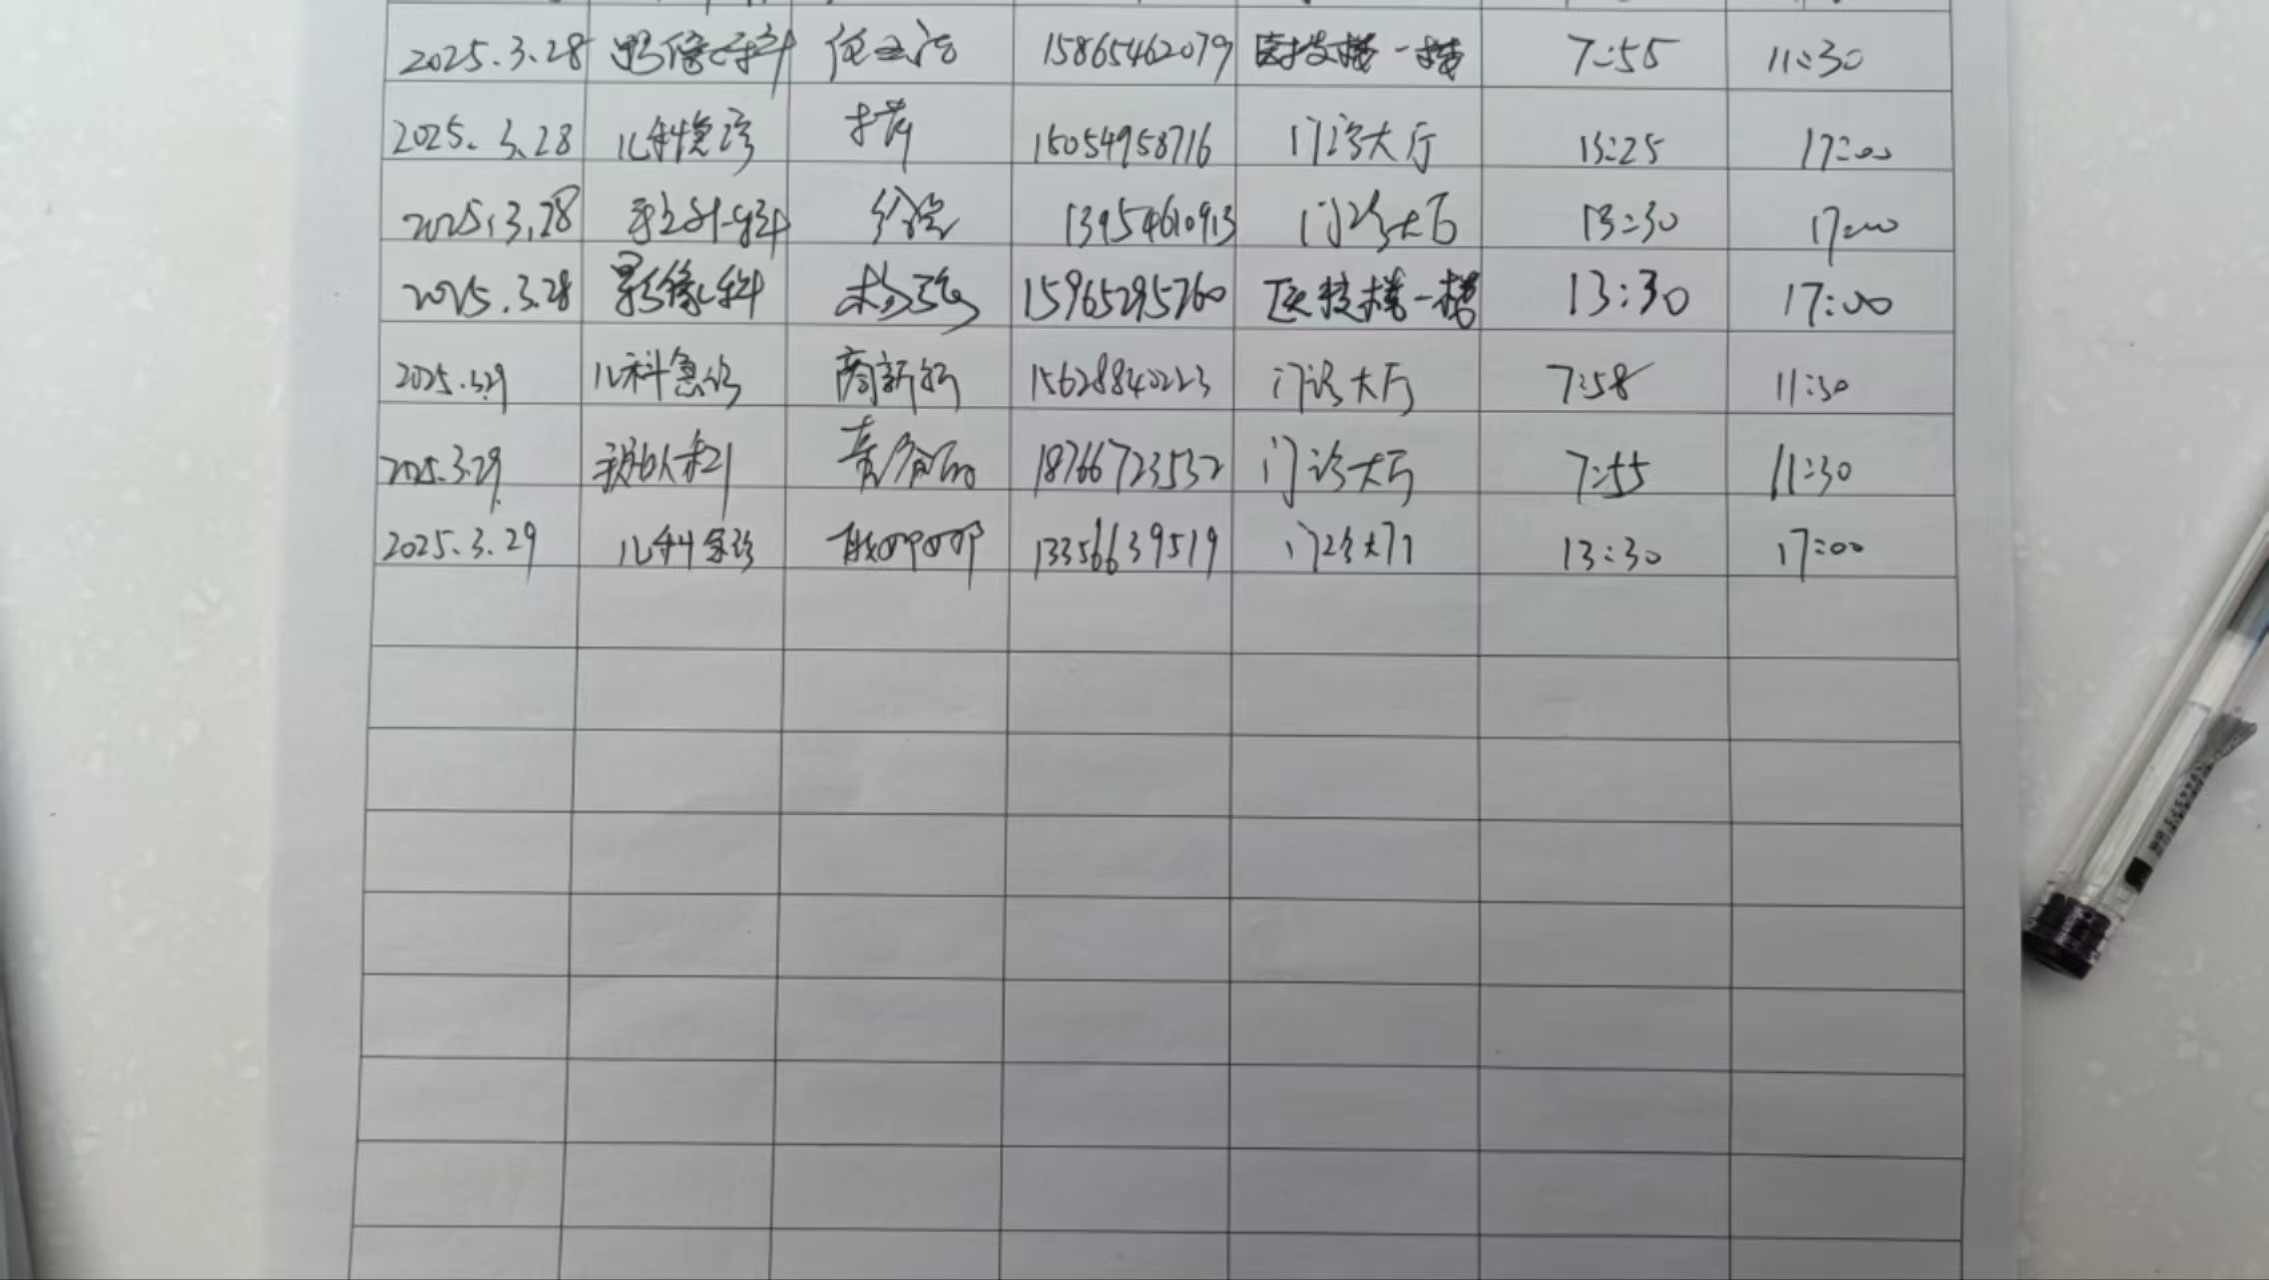 2025.3.28 影像科 15865462079 医技楼一楼 7:55 11:30
2025.3.28 儿科急诊 15054958716 门诊大厅 13:25 17:00
2025.3.28 手足外科 13954610913 门诊大厅 13:30 17:00
2025.3.28 影像科 杨强 15965295760 医技楼一楼 13:30 17:00
2025.3.29 儿科急诊 商新 15628840223 门诊大厅 7:58 11:30
2025.3.29 18766723532 门诊大厅 7:55 11:30
2025.3.29 儿科急诊 13356639519 门诊大厅 13:30 17:00